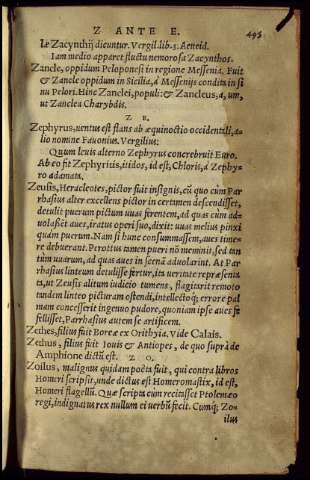 Z ANTE E. 495
Le Zacynthij dicuntur. Vergil. lib. 3. Aeneid.
Iam medio apparet fluctu nemorosa Zacynthos.
Zancle, oppidum Peloponesi in regione Messenia. Fuit
& Zancle oppidum in Sicilia, à Messenijs condita in si
nu Pelori. Hinc Zanclei, populi: & Zancleus, a, um,
ut Zanclea Charybdis.
Z E.
Zephyrus, uentus est flans ab æquinoctio occidentali, a-
lio nomine Fauonius. Vergilius:
Quum leuis alterno Zephyrus concrebruit Euro.
Ab eo fit Zephyritis, itidos, id est, Chloris, à Zephy-
ro adamata.
Zeusis, Heracleotes, pictor fuit insignis, cū quo cùm Par
rhasius alter excellens pictor in certamen descendisset,
detulit puerum pictum uuas ferentem, ad quas cùm ad-
uolasset aues, iratus operi suo, dixit: uuas melius pinxi
quàm puerum. Nam si hunc consummassem, aues time-
re debuerant. Perottus tamen pueri nō meminit, sed tan
tùm uuarum, ad quas aues in scenā aduolarint. At Par
rhasius linteum detulisse fertur, ita ueritate repræsenta
ta, ut Zeusis alitum iudicio tumens, flagitarit remoto
tandem linteo picturam ostendi, intellectoq; errore pal
mam concesserit ingenuo pudore, quoniam ipse aues fe
fellisset, Parrhasius autem se artificem.
Zethes, filius fuit Boreæ ex Orithyia. Vide Calais.
Zethus, filius fuit Iouis & Antiopes, de quo suprà de
Amphione dictū est. Z O.
Zoilus, malignus quidam poëta fuit, qui contra libros
Homeri scripsit, unde dictus est Homeromastix, id est,
Homeri flagellū. Quæ scripta cum recitasset Ptolemæo
regi, indignatus rex nullum ei uerbū fecit. Cumq; Zo-
ilus